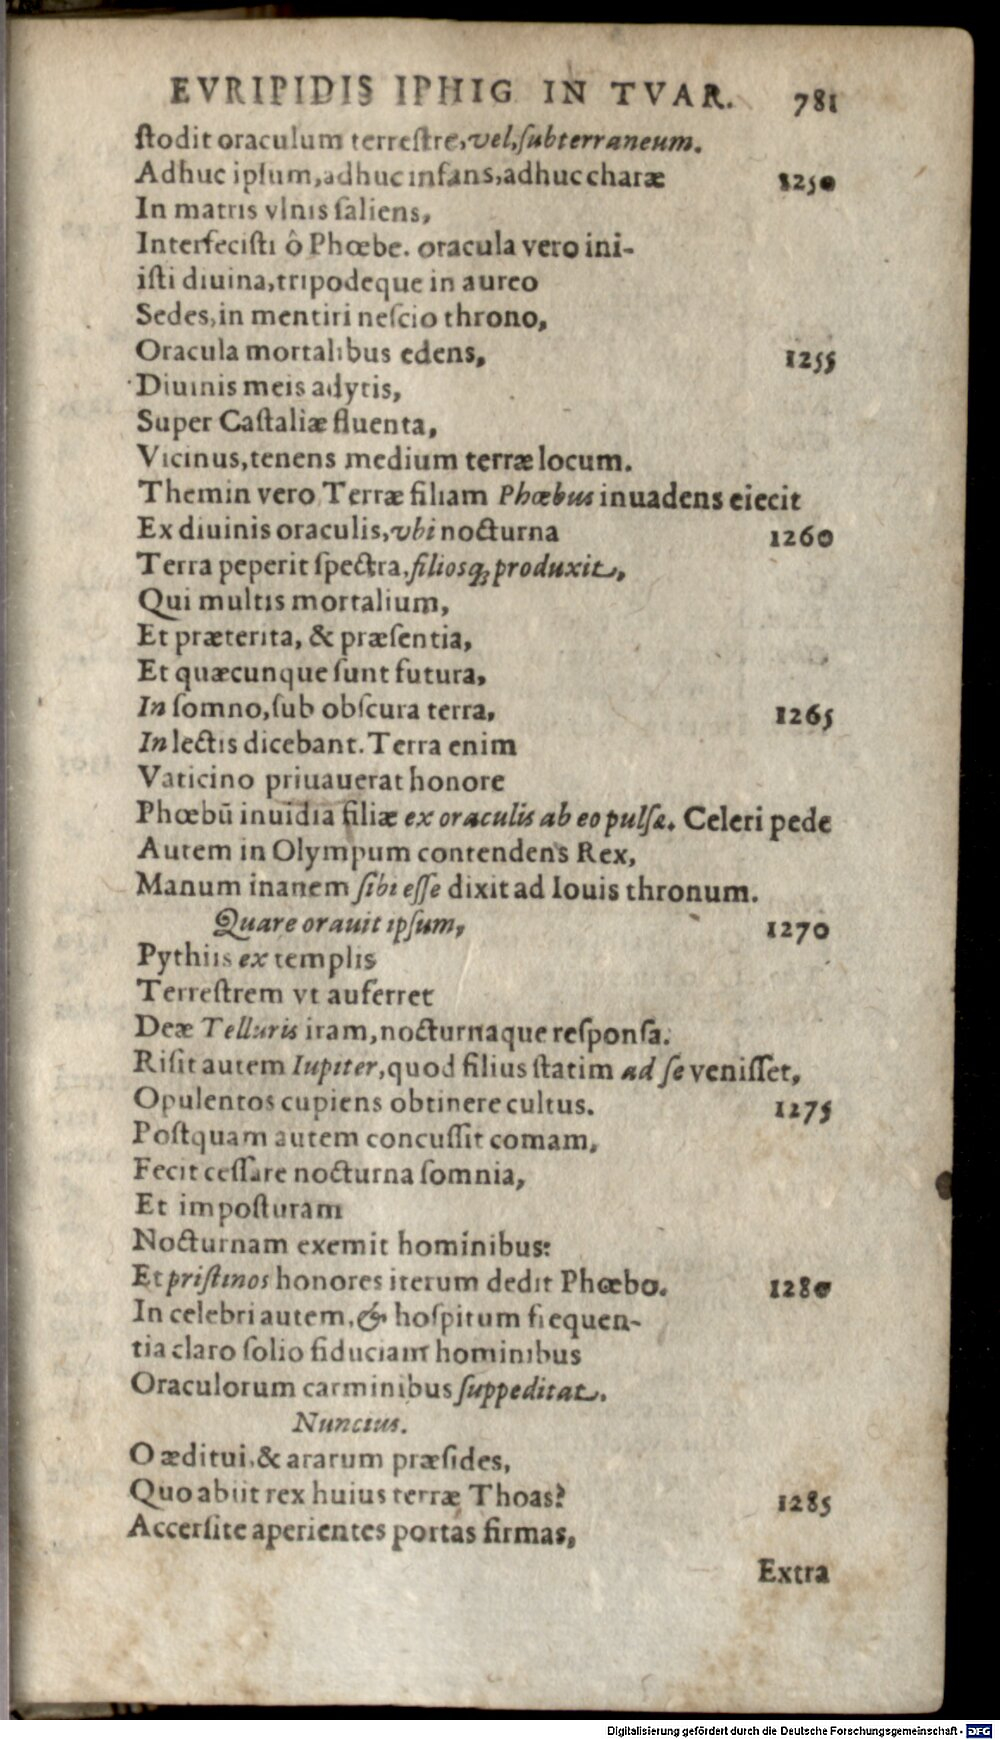 EVRIPIDIS IPHIG IN TVAR. 781
ſtodit oraculum terreſtre, vel, ſubterraneum.
Adhuc ipſum, adhuc infans, adhuc charæ 1250
In matris vlnis ſaliens,
Interfeciſti ô Phœbe. oracula vero ini-
iſti diuina, tripodeque in aureo
Sedes, in mentiri neſcio throno,
Oracula mortalibus edens, 1255
Diuinis meis adytis,
Super Caſtaliæ fluenta,
Vicinus, tenens medium terræ locum.
Themin vero Terræ filiam Phœbus inuadens eiecit
Ex diuinis oraculis, vbi nocturna 1260
Terra peperit ſpectra, filiosq; produxit,
Qui multis mortalium,
Et præterita, & præſentia,
Et quæcunque ſunt futura,
In ſomno, ſub obſcura terra, 1265
In lectis dicebant. Terra enim
Vaticino priuauerat honore
Phœbū inuidia filiæ ex oraculis ab eo pulſæ. Celeri pede
Autem in Olympum contendens Rex,
Manum inanem ſibi eſſe dixit ad Iouis thronum.
Quare orauit ipſum, 1270
Pythiis ex templis
Terreſtrem vt auferret
Deæ Telluris iram, nocturnaque reſponſa.
Riſit autem Iupiter, quod filius ſtatim ad ſe veniſſet,
Opulentos cupiens obtinere cultus. 1275
Poſtquam autem concuſſit comam,
Fecit ceſſare nocturna ſomnia,
Et impoſturam
Nocturnam exemit hominibus:
Et priſtinos honores iterum dedit Phœbo. 1280
In celebri autem, & hoſpitum frequen-
tia claro ſolio fiduciam hominibus
Oraculorum carminibus ſuppeditat.
Nuncius.
O æditui, & ararum præſides,
Quo abiit rex huius terræ Thoas? 1285
Accerſite aperientes portas firmas,
Extra
Digitalisierung gefördert durch die Deutsche Forschungsgemeinschaft - DFG